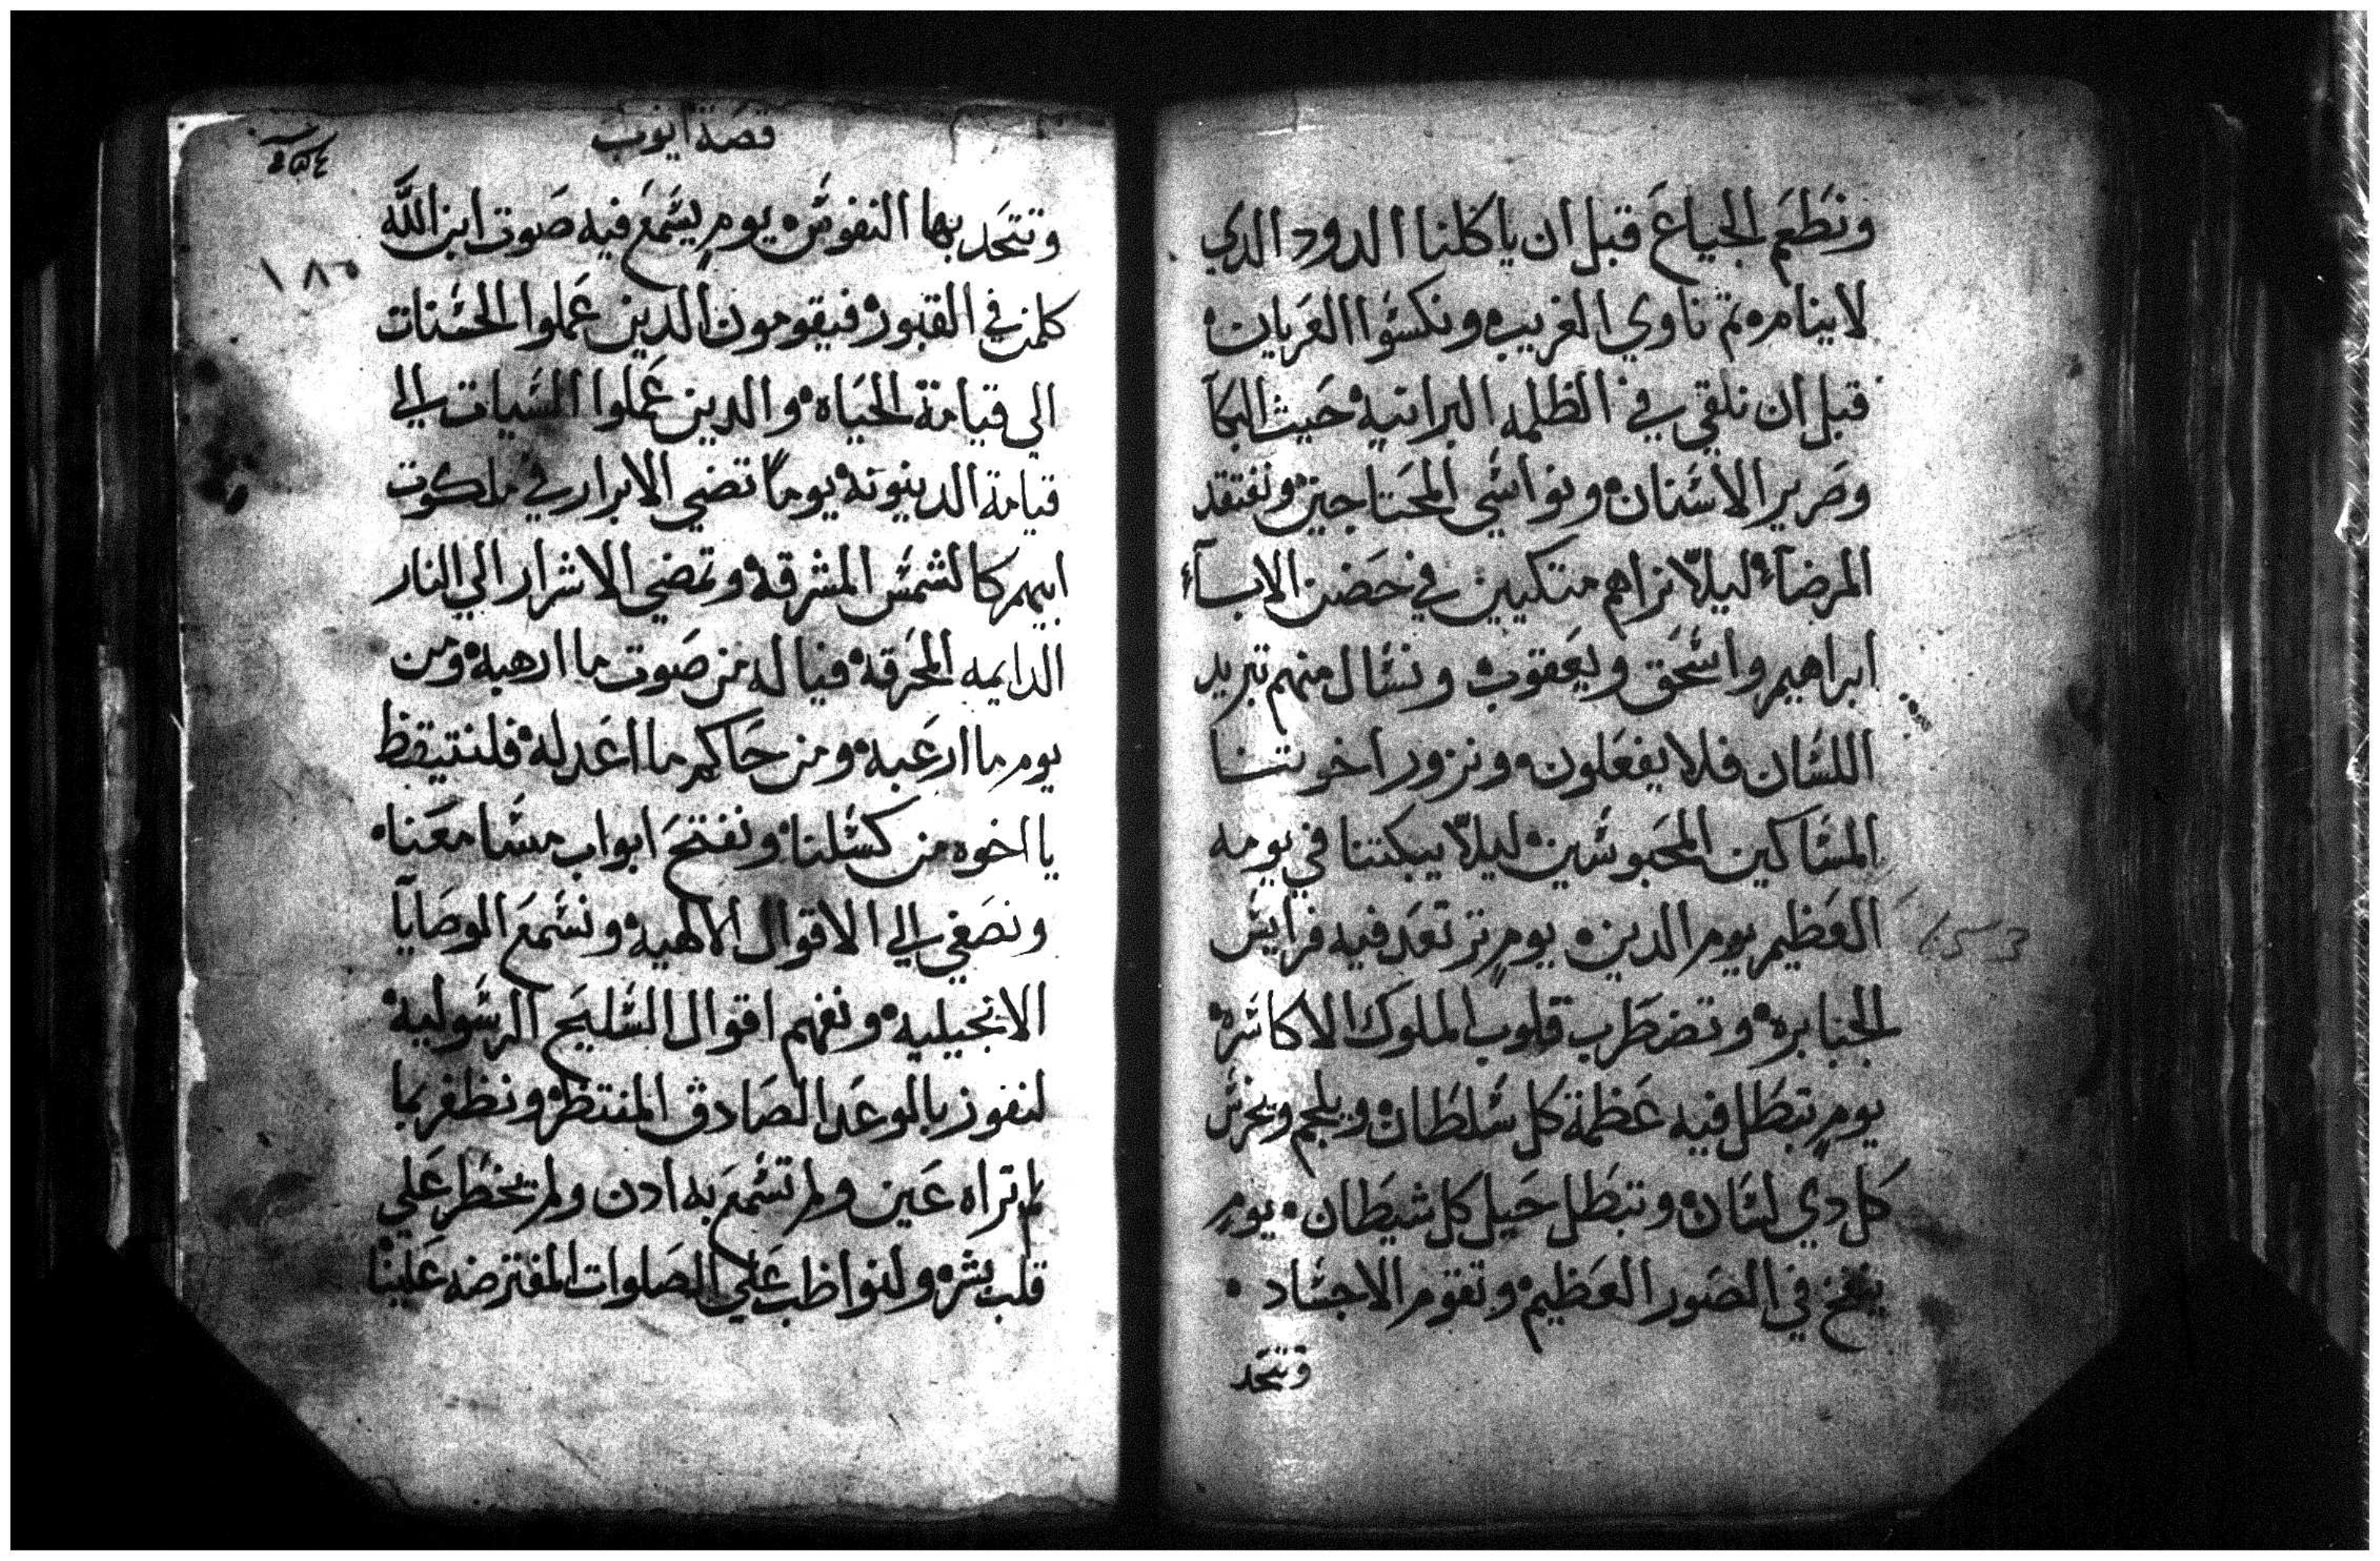 ونطعم الجياع قبل ان ياكلنا الدود الدي
لاينام ثم ناوي الغريب ونكسوا العريان
قبل ان نلقي في الظلمه البرانيه حيث البكآ
وصرير الاسنان ونواسي المحتاجين ونفتقد
المرضآء ليلا نراهم متكيين في حضن الابـآء
ابراهيم واسحق ويعقوب ونسال منهم تبريد
اللسان فلا يفعلون ونزور اخوتنا
المساكين المحبوسين ليلا يبكتنا في يومه
العظيم يوم الدين يوم ترتعد فيه فرايس
الجبابره وتضطرب قلوب الملوك الاكاسره
يوم تبطل فيه عظمة كل سلطان ويلجم ويخرس
كل دي لسان وتبطل حيل كل شيطان يوم
ينفخ في الصور العظيم وتقوم الاجساد
وتتحد
قصة ايوب
١٨٥
وتتحد بها النفوس يوم يسمع فيه صوت ابن الله
كلمن في القبور فيقومون الدين عملوا الحسنات
الي قيامة الحياه والدين عملوا السيات الي
قيامة الدينونه يوما تضي الابرار في ملكوت
ابيهم كالشمس المشرقه وتمضي الاشرار الي النار
الدايمه المحرقه فياله من صوت ما ارهبه ومن
يوم ما ارعبه ومن حاكم ما اعدله فلنتيقظ
يا اخوه من كسلنا ونفتح ابواب مسامعنا
ونصغي الي الاقوال الالهيه ونسمع الوصايا
الانجيليه ونفهم اقوال السليح الرسوليه
لنفوز بالوعد الصادق المنتظر ونظفر بما
لم تراه عين ولم تسمع به ادن ولم يخطر علي
قلب بشر ولنواظب علي الصلوات المفترضه علينا